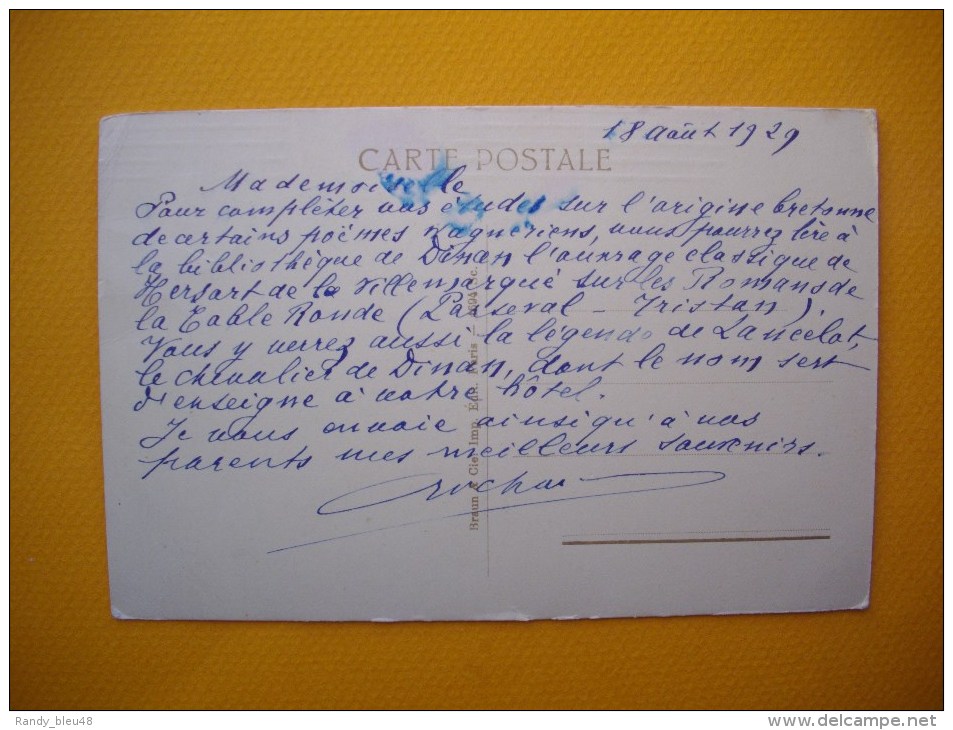 18 août 1929
CARTE POSTALE
Mademoiselle
Pour compléter vos études sur l'origine bretonne
de certains poëmes wagnériens, vous pourrez lire à
la bibliothèque de Dinan l'ouvrage classique de
Hersart de la Villemarqué sur les Romans de
la Table Ronde (Parseval - Tristan).
Vous y verrez aussi la légende de Lancelot,
le chevalier de Dinan, dont le nom sert
d'enseigne à votre hôtel.
Je vous envoie ainsi qu'à vos
parents mes meilleurs souvenirs.
Braun & Cie, Imp. Édit. Paris
Randy_bleu48
http://www.delcampe.net